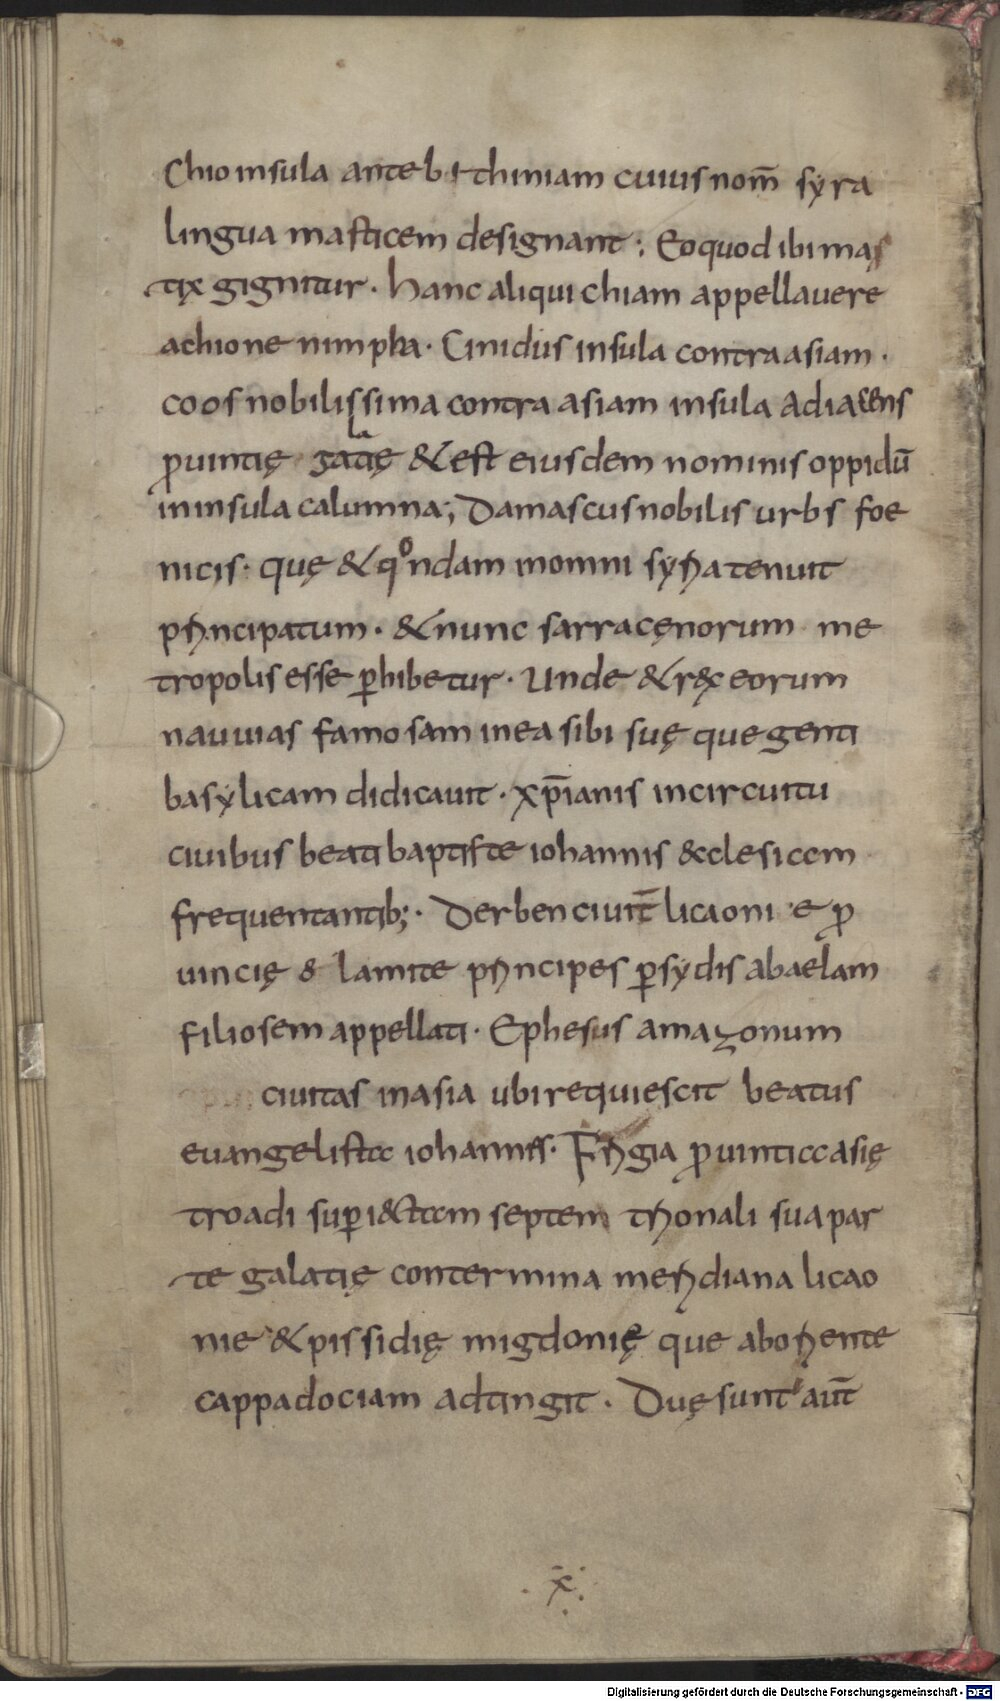 Chio insula ante bithiniam cuius nom̄ syra
lingua masticem designant; Eo quod ibi mas
tix gignitur. hanc aliqui chiam appellavere
achione nimpha. Cinidus insula contra asiam.
coos nobilissima contra asiam insula adiacens
ꝓuintię galatię & est eiusdem nominis oppidū
in insula calumna; Damascus nobilis urbs foe
nicis. quę & qͦndam in omni syria tenuit
principatum. & nunc sarracęnorum me
tropolis esse ꝑhibetur. Unde & r&x eorum
nauuias famosam in ea sibi suę que genti
basylicam didicauit. xp̄ianis in circuitu
ciuibus beati baptiste iohannis &clesiam
frequentantib;. Derben ciuit̄ licaonie ꝓ
uincię & lamite principes ꝑsydis ab aelam
filio sem appellati. Ephesus amazonum
ciuitas in asia ubi requiescit beatus
euangelista iohannes. Frigia ꝓuintia asię
troadi suꝑi&tam septemtrionali sua par
te galatię contermina meridiana licao
nie & pissidię migdonię que ab oriente
cappadociam adtingit. Duę sunt aut̄
x
Digitalisierung gefördert durch die Deutsche Forschungsgemeinschaft - DFG